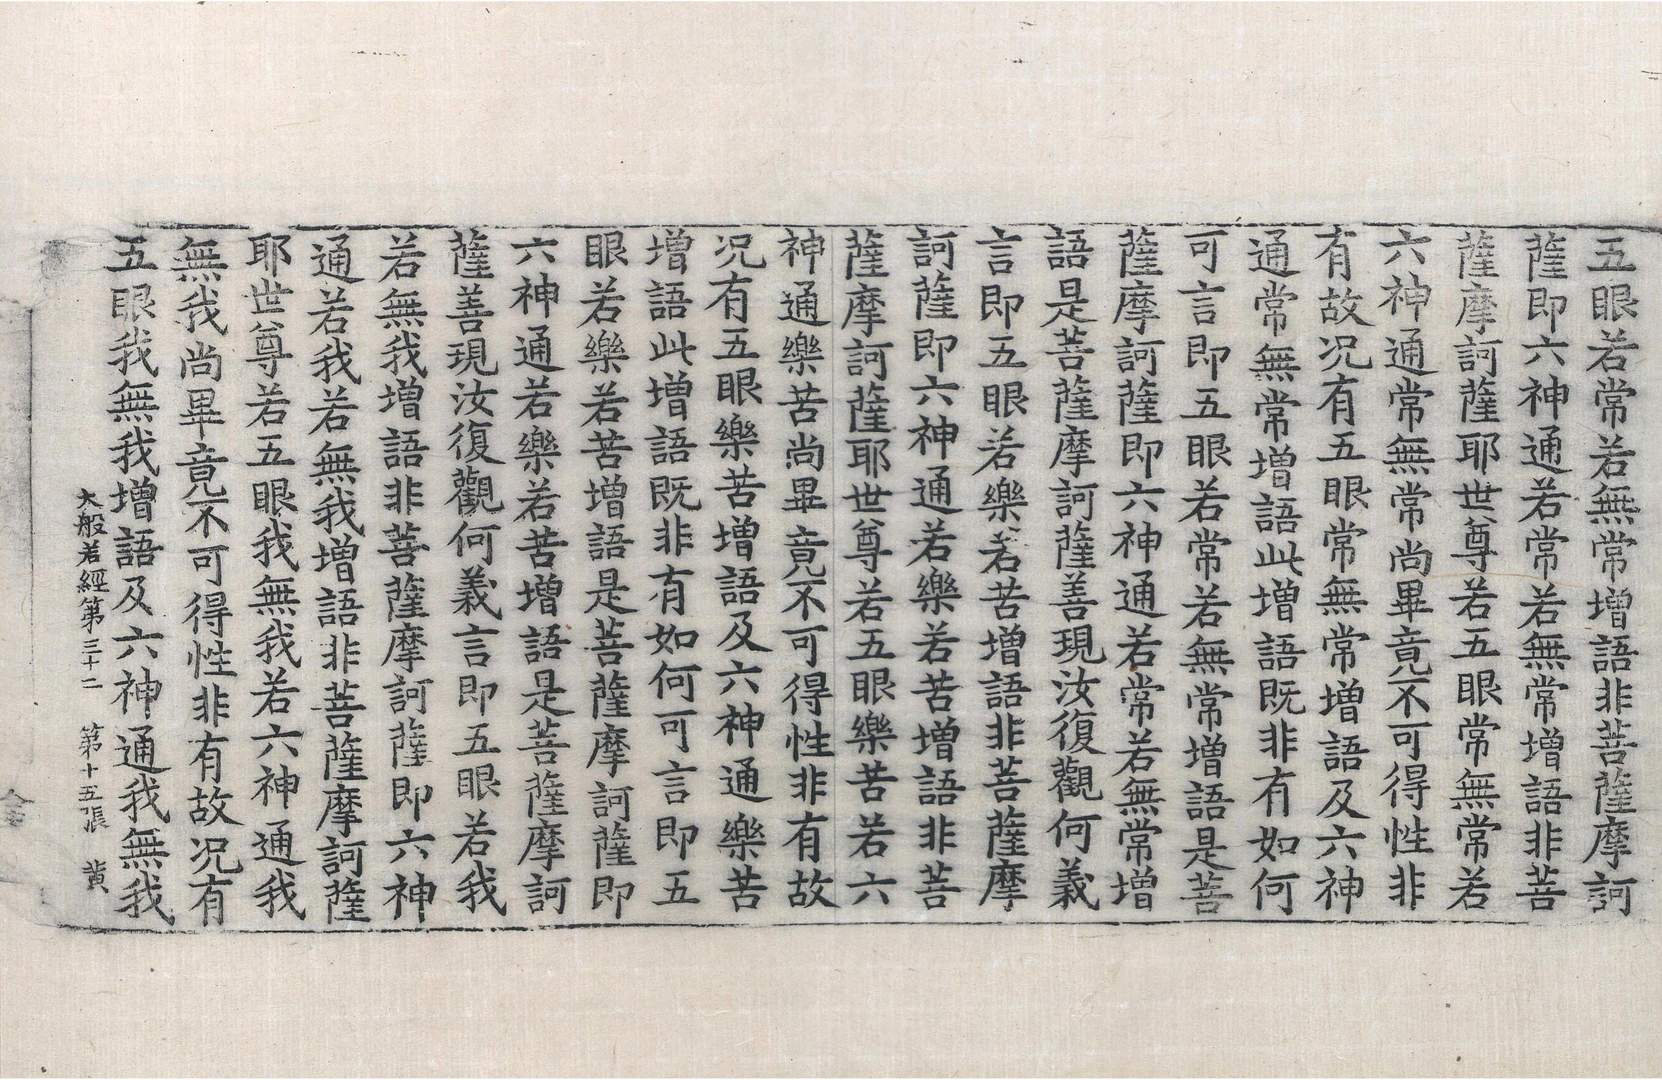 五眼若常若無常增語非菩薩摩訶
薩即六神通若常若無常增語非菩
薩摩訶薩耶世尊若五眼常無常若
六神通常無常尚畢竟不可得性非
有故况有五眼常無常增語及六神
通常無常增語此增語既非有如何
可言即五眼若常若無常增語是菩
薩摩訶薩即六神通若常若無常增
語是菩薩摩訶薩善現汝復觀何義
言即五眼若樂若苦增語非菩薩摩
訶薩即六神通若樂若苦增語非菩
薩摩訶薩耶世尊若五眼樂苦若六
神通樂苦尚畢竟不可得性非有故
况有五眼樂苦增語及六神通樂苦
增語此增語既非有如何可言即五
眼若樂若苦增語是菩薩摩訶薩即
六神通若樂若苦增語是菩薩摩訶
薩善現汝復觀何義言即五眼若我
若無我增語非菩薩摩訶薩即六神
通若我若無我增語非菩薩摩訶薩
耶世尊若五眼我無我若六神通我
無我尚畢竟不可得性非有故况有
五眼我無我增語及六神通我無我
大般若經第三十二 第十五張 黄